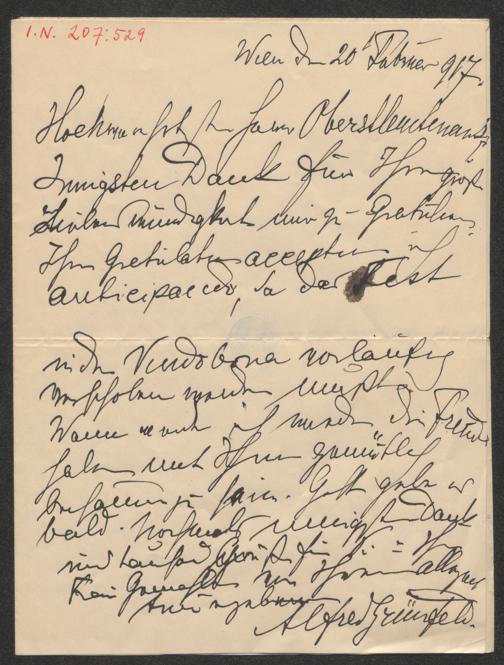 I.N. 207.529
Wien den 20 Februar 917.
Hochverehrtester Herr Oberstleutenant!
Innigsten Dank für Ihre große
Liebenswürdigkeit mir zu Gratuliren
Ihre Gratulation acceptire ich
anticipando, da das Fest
in der Vindobona vorläufig
verschoben werden mußte.
Wann werde ich wieder die Freude
haben mit Ihnen gemütlich
beisammen zu sein. Gott gebe es
bald. Nochmals innigsten Dank
und tausend Grüße für Sie u Ihre
Frau Gemahlin von Ihrem
Alfred Grünfeld.